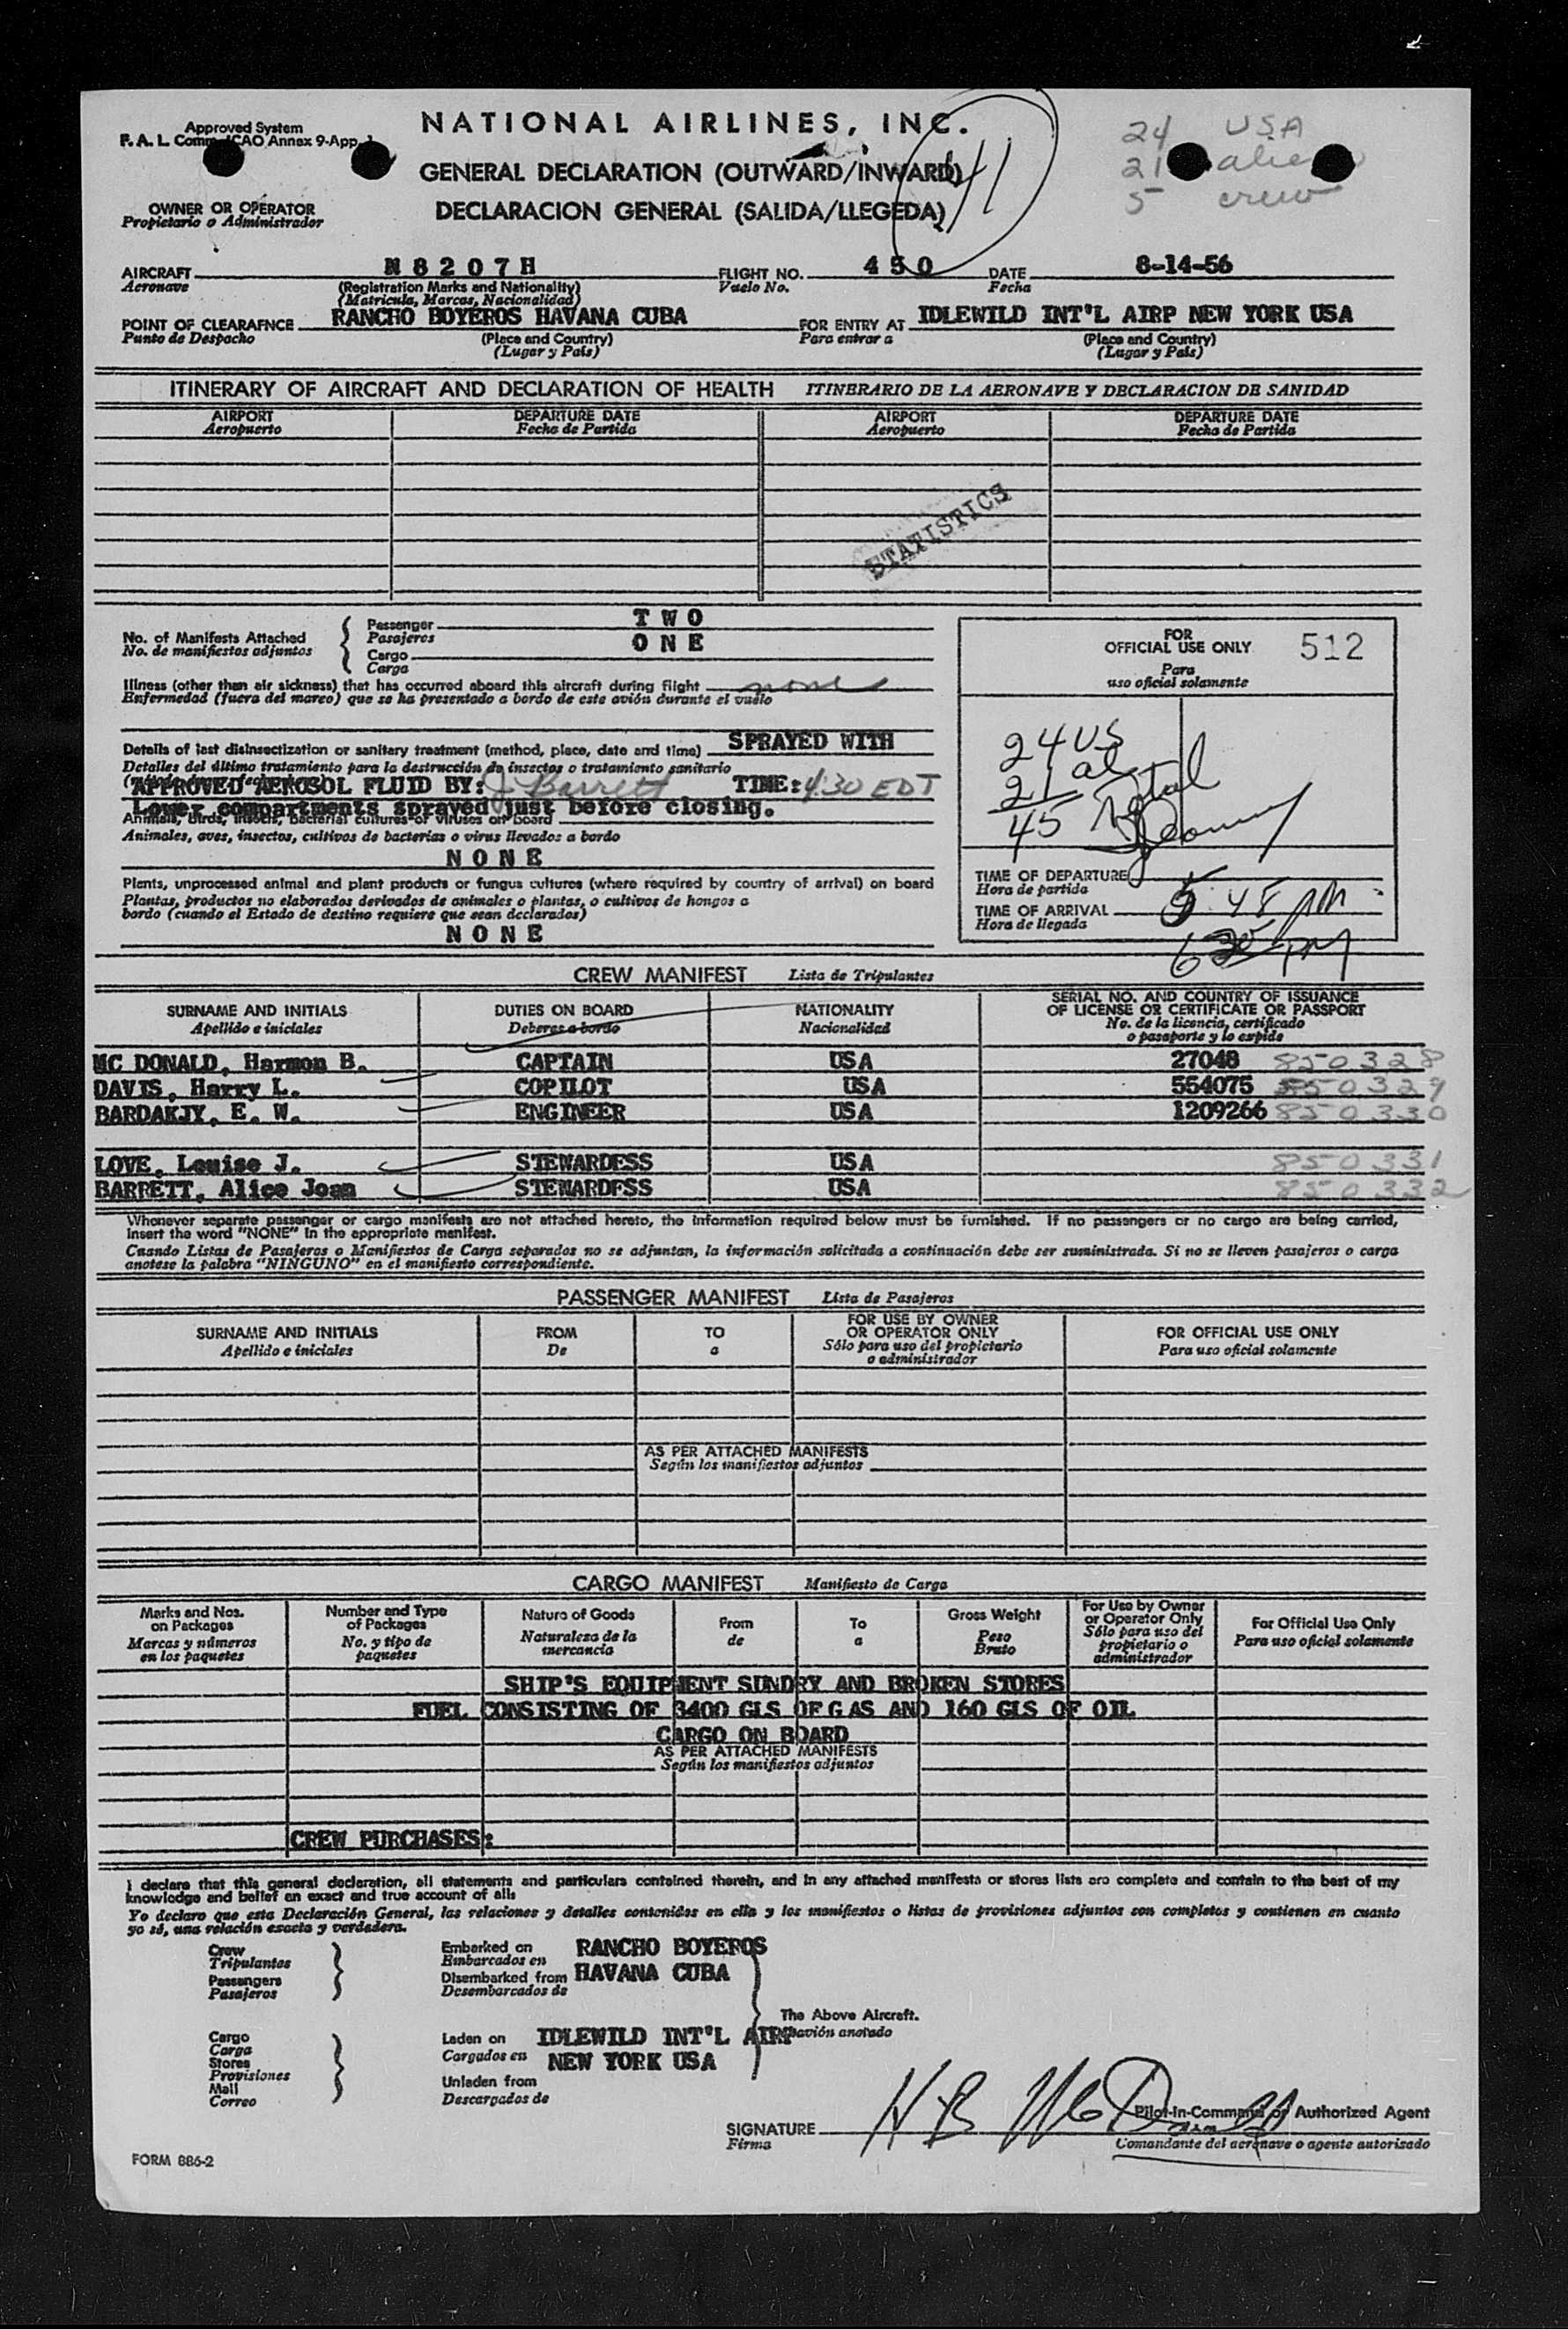 Approved System
F. A. L. Comm. ICAO Annex 9-App. 1
NATIONAL AIRLINES, INC.
GENERAL DECLARATION (OUTWARD/INWARD)
DECLARACION GENERAL (SALIDA/LLEGEDA)
24 USA
21 alien
5 crew
OWNER OR OPERATOR
Propietario o Administrador
AIRCRAFT N 8 2 0 7 H FLIGHT NO. 4 5 0 DATE 8-14-56
Aeronave (Registration Marks and Nationality) Vuelo No. Fecha
(Matricula, Marcas, Nacionalidad)
POINT OF CLEARAFNCE RANCHO BOYEROS HAVANA CUBA FOR ENTRY AT IDLEWILD INT'L AIRP NEW YORK USA
Punto de Despacho (Place and Country) Para entrar a (Place and Country)
(Lugar y País) (Lugar y País)
ITINERARY OF AIRCRAFT AND DECLARATION OF HEALTH ITINERARIO DE LA AERONAVE Y DECLARACION DE SANIDAD
AIRPORT DEPARTURE DATE AIRPORT DEPARTURE DATE
Aeropuerto Fecha de Partida Aeropuerto Fecha de Partida
STATISTICS
No. of Manifests Attached
No. de manifiestos adjuntos
Passenger T W O
Pasajeros
Cargo O N E
Carga
Illness (other than air sickness) that has occurred aboard this aircraft during flight none
Enfermedad (fuera del mareo) que se ha presentado a bordo de este avión durante el vuelo
Details of last disinsectization or sanitary treatment (method, place, date and time) SPRAYED WITH
Detalles del último tratamiento para la destrucción de insectos o tratamiento sanitario
APPROVED AEROSOL FLUID BY: J Barrett TIME: 4:30 EDT
Lower compartments sprayed just before closing.
Animals, birds, insects, bacterial cultures or viruses on board
Animales, aves, insectos, cultivos de bacterias o virus llevados a bordo
N O N E
Plants, unprocessed animal and plant products or fungus cultures (where required by country of arrival) on board
Plantas, productos no elaborados derivados de animales o plantas, o cultivos de hongos a
bordo (cuando el Estado de destino requiere que sean declarados)
N O N E
FOR
OFFICIAL USE ONLY 512
Para
uso oficial solamente
24 US
21 al
45 Total
TIME OF DEPARTURE
Hora de partida
TIME OF ARRIVAL 5:48 PM
Hora de llegada
CREW MANIFEST Lista de Tripulantes
SURNAME AND INITIALS DUTIES ON BOARD NATIONALITY SERIAL NO. AND COUNTRY OF ISSUANCE
OF LICENSE OR CERTIFICATE OR PASSPORT
Apellido e iniciales Deberes a bordo Nacionalidad No. de la licencia, certificado
o pasaporte y lo expide
MC DONALD, Harmon B. CAPTAIN USA 27048 850328
DAVIS, Harry L. COPILOT USA 554075 850329
BARDAKJY, E. W. ENGINEER USA 1209266 850330
LOVE, Louise J. STEWARDESS USA 850331
BARRETT, Alice Joan STEWARDESS USA 850332
Whenever separate passenger or cargo manifests are not attached hereto, the information required below must be furnished. If no passengers or no cargo are being carried,
insert the word "NONE" in the appropriate manifest.
Cuando Listas de Pasajeros o Manifiestos de Carga separados no se adjuntan, la información solicitada a continuación debe ser suministrada. Si no se lleven pasajeros o carga
anotese la palabra "NINGUNO" en el manifiesto correspondiente.
PASSENGER MANIFEST Lista de Pasajeros
SURNAME AND INITIALS FROM TO FOR USE BY OWNER
OR OPERATOR ONLY FOR OFFICIAL USE ONLY
Apellido e iniciales De a Sólo para uso del propietario
o administrador Para uso oficial solamente
AS PER ATTACHED MANIFESTS
Según los manifiestos adjuntos
CARGO MANIFEST Manifiesto de Carga
Marks and Nos.
on Packages
Marcas y números
en los paquetes
Number and Type
of Packages
No. y tipo de
paquetes
Nature of Goods
Naturaleza de la
mercancia
From
de
To
a
Gross Weight
Peso
Bruto
For Use by Owner
or Operator Only
Sólo para uso del
propietario o
administrador
For Official Use Only
Para uso oficial solamente
SHIP'S EQUIPMENT SUNDRY AND BROKEN STORES
FUEL CONSISTING OF 3400 GLS OF GAS AND 160 GLS OF OIL
CARGO ON BOARD
AS PER ATTACHED MANIFESTS
Según los manifiestos adjuntos
CREW PURCHASES:
I declare that this general declaration, all statements and particulars contained therein, and in any attached manifests or stores lists are complete and contain to the best of my
knowledge and belief an exact and true account of all:
Yo declaro que esta Declaración General, las relaciones y detalles contenidos en ella y los manifiestos o listas de provisiones adjuntos son completos y contienen en cuanto
yo sé, una relación exacta y verdadera.
Crew
Tripulantes
Passengers
Pasajeros
Embarked on RANCHO BOYEROS
Embarcados en
Disembarked from HAVANA CUBA
Desembarcados de
The Above Aircraft.
avión anotado
Cargo
Carga
Stores
Provisiones
Mail
Correo
Laden on IDLEWILD INT'L AIRP
Cargados en NEW YORK USA
Unladen from
Descargados de
SIGNATURE H B McDonald Pilot-in-Command or Authorized Agent
Firma Comandante del aeronave o agente autorizado
FORM 886-2